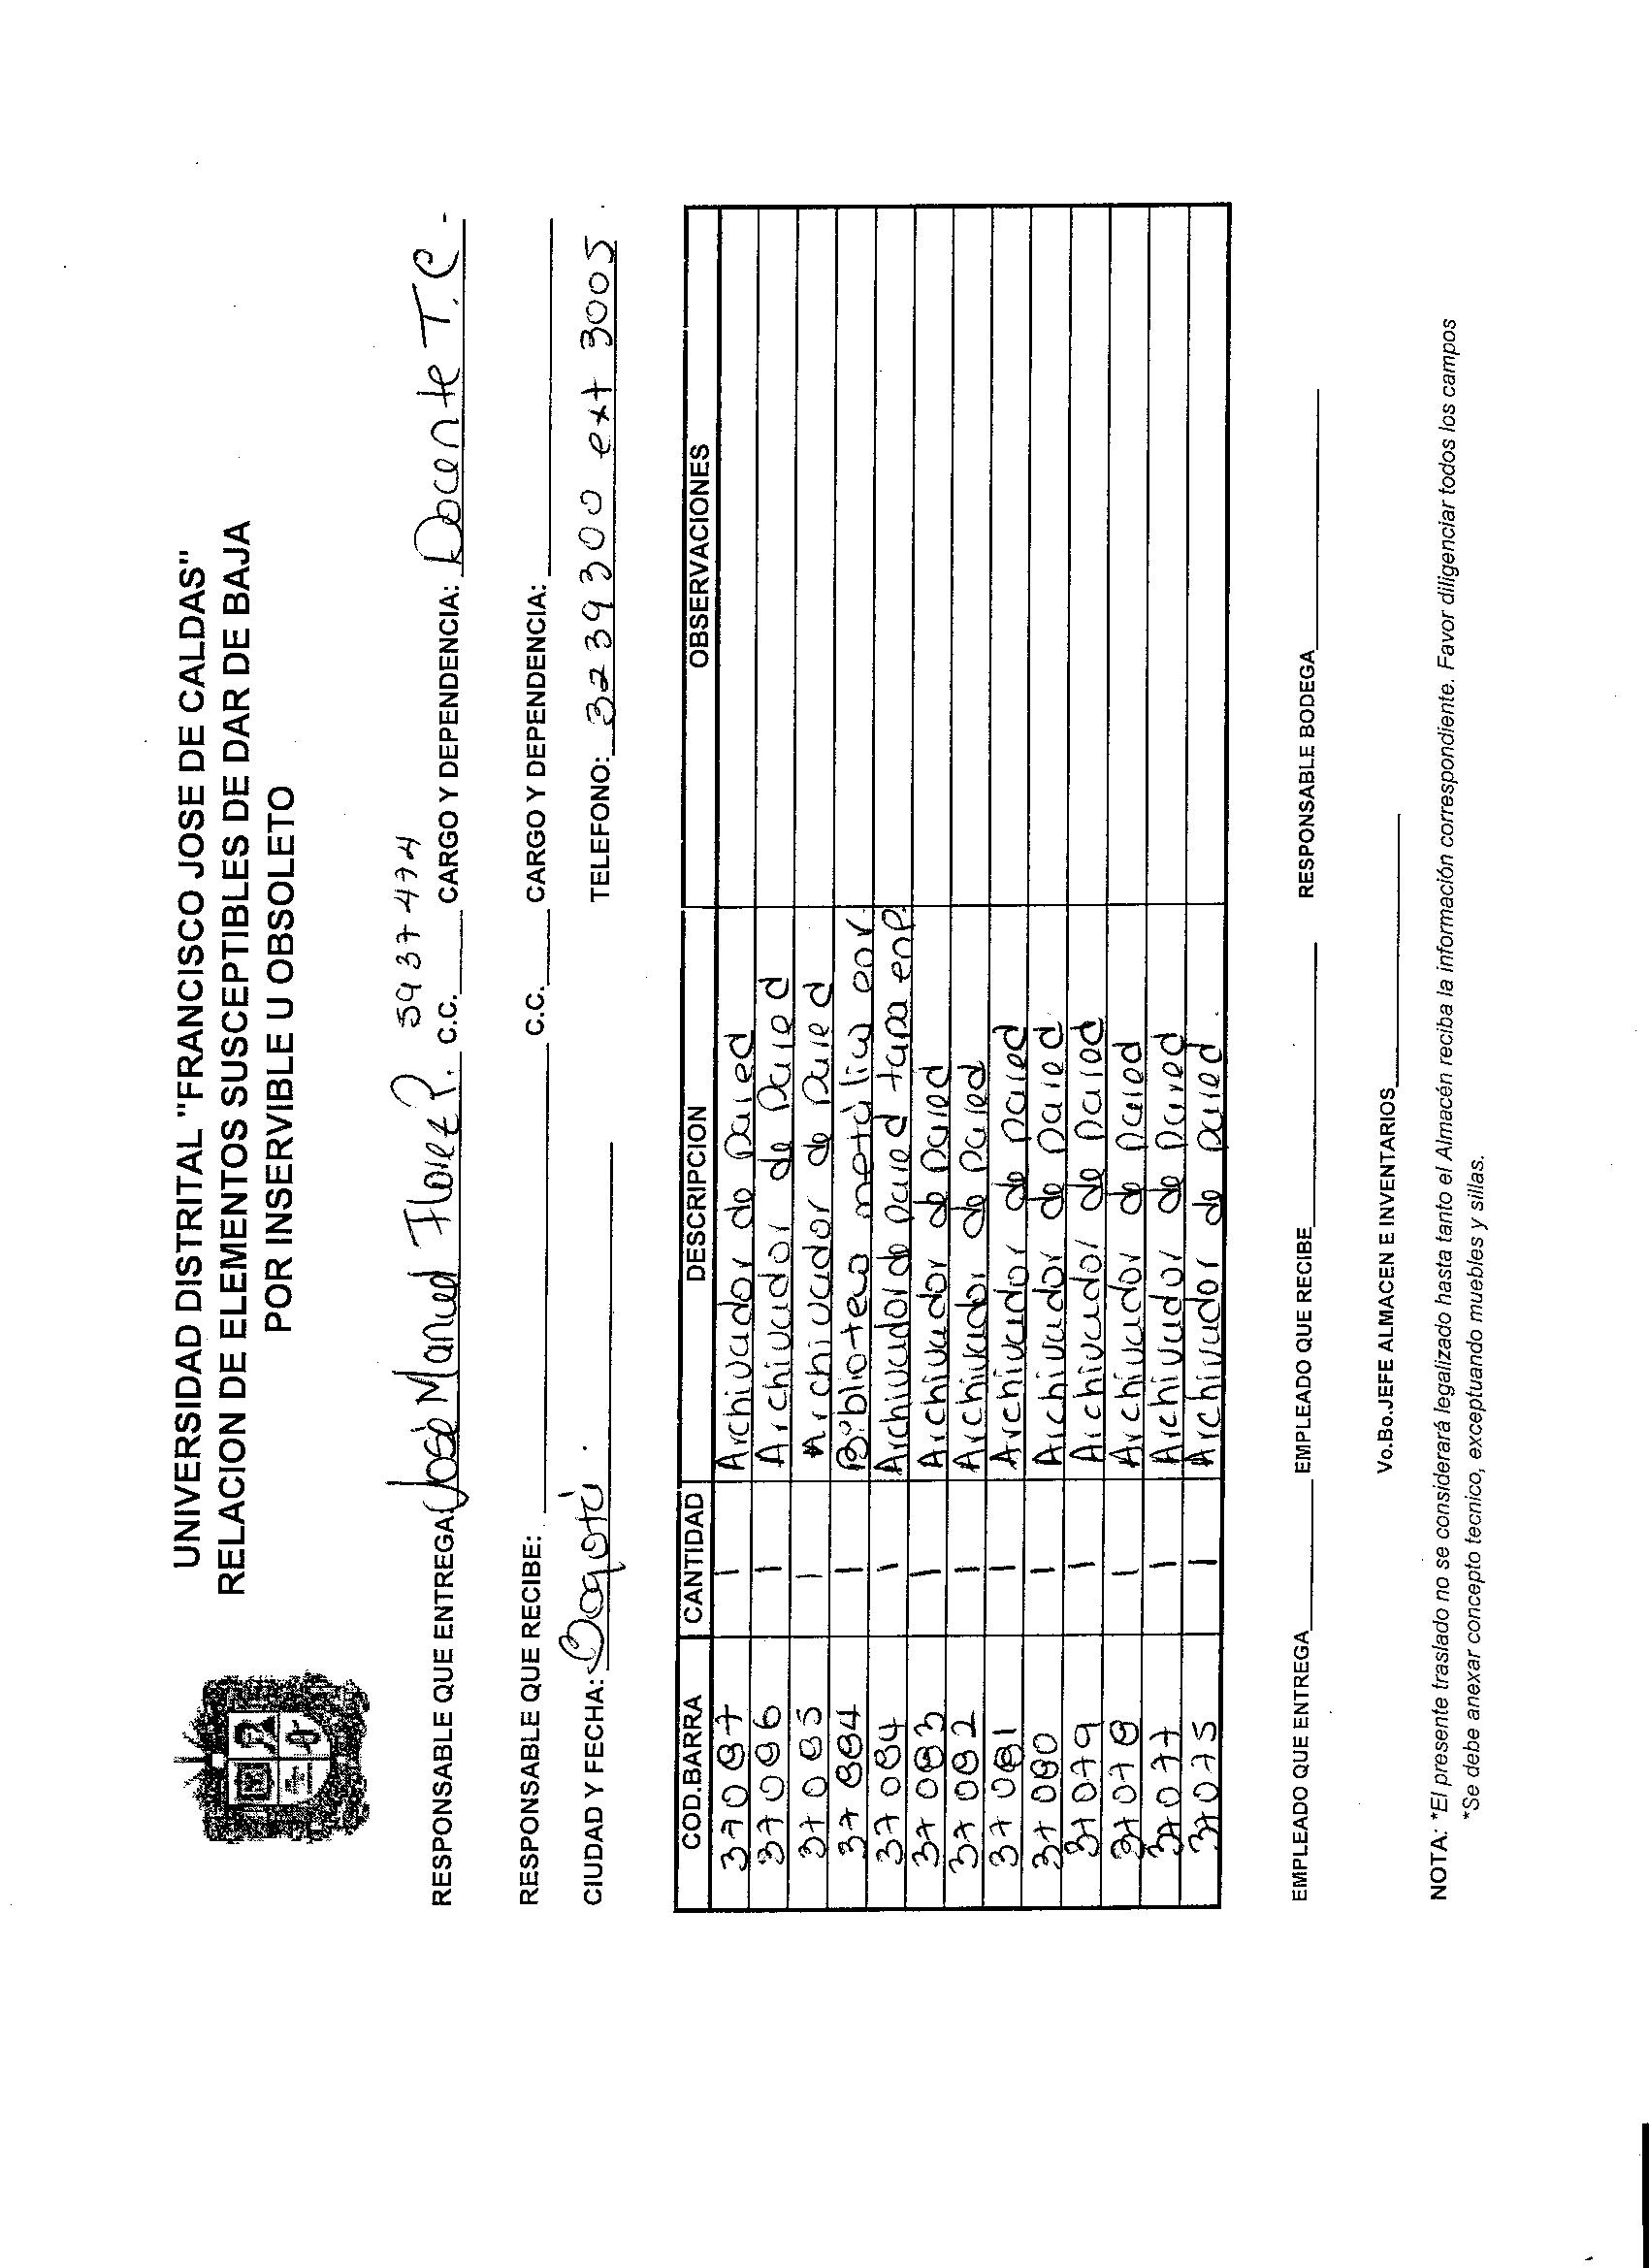 UNIVERSIDAD DISTRITAL "FRANCISCO JOSE DE CALDAS"
RELACION DE ELEMENTOS SUSCEPTIBLES DE DAR DE BAJA
POR INSERVIBLE U OBSOLETO
RESPONSABLE QUE ENTREGA: José Manuel Florez P. C.C. 5937474 CARGO Y DEPENDENCIA: Docente T.C.
RESPONSABLE QUE RECIBE: C.C. CARGO Y DEPENDENCIA:
CIUDAD Y FECHA: Bogotá. TELEFONO: 3239300 ext 3005
COD.BARRA CANTIDAD DESCRIPCION OBSERVACIONES
37087 1 Archivador de pared
37086 1 Archivador de pared
37085 1 Archivador de pared
37884 1 Biblioteca metalica
37084 1 Archivador de pared tapa enp
37083 1 Archivador de pared
37082 1 Archivador de pared
37081 1 Archivador de pared
37080 1 Archivador de pared
37079 1 Archivador de pared
37078 1 Archivador de pared
37077 1 Archivador de pared
37075 1 Archivador de pared
EMPLEADO QUE ENTREGA EMPLEADO QUE RECIBE RESPONSABLE BODEGA
Vo.Bo.JEFE ALMACEN E INVENTARIOS
NOTA: *El presente traslado no se considerará legalizado hasta tanto el Almacén reciba la información correspondiente. Favor diligenciar todos los campos
*Se debe anexar concepto tecnico, exceptuando muebles y sillas.